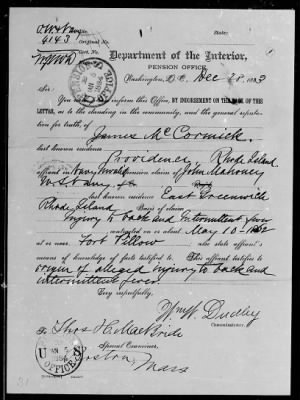 Original No.
4143
Department of the Interior,
PENSION OFFICE,
Washington, D.C., Dec 28, 1883
Sir:
You will inform this Office, BY ENDORSEMENT ON THE BACK OF THE
LETTER, as to the standing in the community, and the general reputa-
tion for truth, of
James McCormick,
last known residence
Providence, Rhode Island
affiant in Navy Invalid pension claim of John Mahoney
last known residence East Greenwich
Rhode Island Basis of claim:
Injury to back and Intermittent fever
contracted on or about May 10-1862
at or near Fort Pillow also state affiant's
means of knowledge of facts testified to. The affiant testifies to
origin of alleged injury to back and
intermittent fever.
Very respectfully,
Wm W. Dudley
Commissioner.
To Thos H. MacBride
Special Examiner,
Boston,
Mass
U S
OFFICE